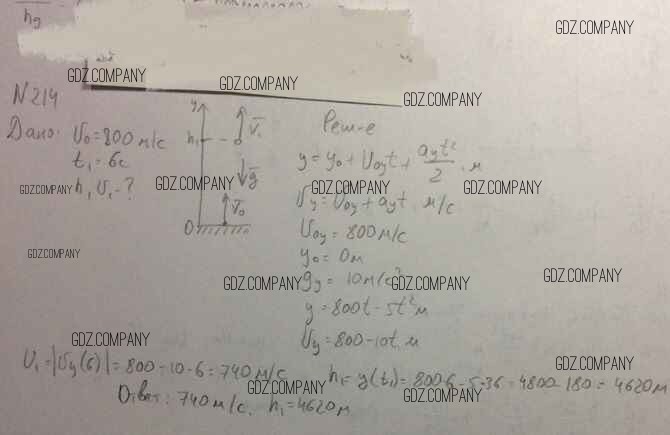 hg
GDZ.COMPANY
GDZ.COMPANY GDZ.COMPANY GDZ.COMPANY
N214
Дано:
V₀=800 м/с
t₁=6с
h₁ V₁-?
y
h₁
V̄₁
ḡ
V̄₀
0
Реш-е
y=y₀+V₀yt+ayt²/2, м
Vy=V₀y+ayt, м/с
V₀y=800 м/с
y₀=0м
gy= 10м/с²
y=800t-5t² м
Vy=800-10t, м
GDZ.COMPANY GDZ.COMPANY GDZ.COMPANY GDZ.COMPANY
GDZ.COMPANY
GDZ.COMPANY GDZ.COMPANY GDZ.COMPANY
GDZ.COMPANY
V₁=|Vy(6)|=800-10·6=740 м/с
h₁=y(t₁)=800·6-5·36=4800-180=4620м
GDZ.COMPANY
Ответ: 740 м/с, h₁=4620м
GDZ.COMPANY GDZ.COMPANY